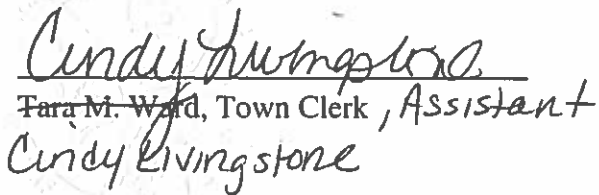 Cindy Livingstone
Tara M. Ward, Town Clerk, Assistant
Cindy Livingstone